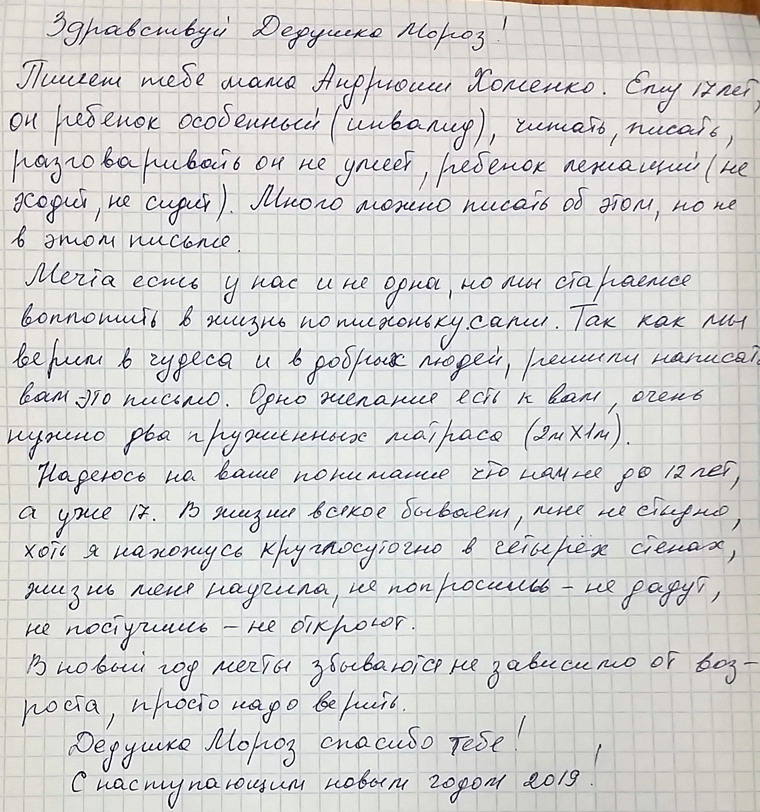 Здравствуй Дедушка Мороз!
Пишет тебе мама Андрюши Хоменко. Ему 17 лет,
он ребенок особенный (инвалид), читать, писать,
разговаривать он не умеет, ребенок лежащий (не
ходит, не сидит). Много можно писать об этом, но не
в этом письме.
Мечта есть у нас и не одна, но мы стараемся
воплотить в жизнь потихоньку сами. Так как мы
верим в чудеса и в добрых людей, решили написать
вам это письмо. Одно желание есть к вам, очень
нужно два пружинных матраса (2м х 1м).
Надеюсь на ваше понимание что нам не до 12 лет,
а уже 17. В жизни всякое бывает, мне не стыдно,
хоть я нахожусь круглосуточно в четырёх стенах,
жизнь меня научила, не попросишь - не дадут,
не постучишь - не откроют.
В новый год мечты збываются не зависимо от воз-
роста, просто надо верить.
Дедушка Мороз спасибо тебе!
С наступающим новым годом 2019!